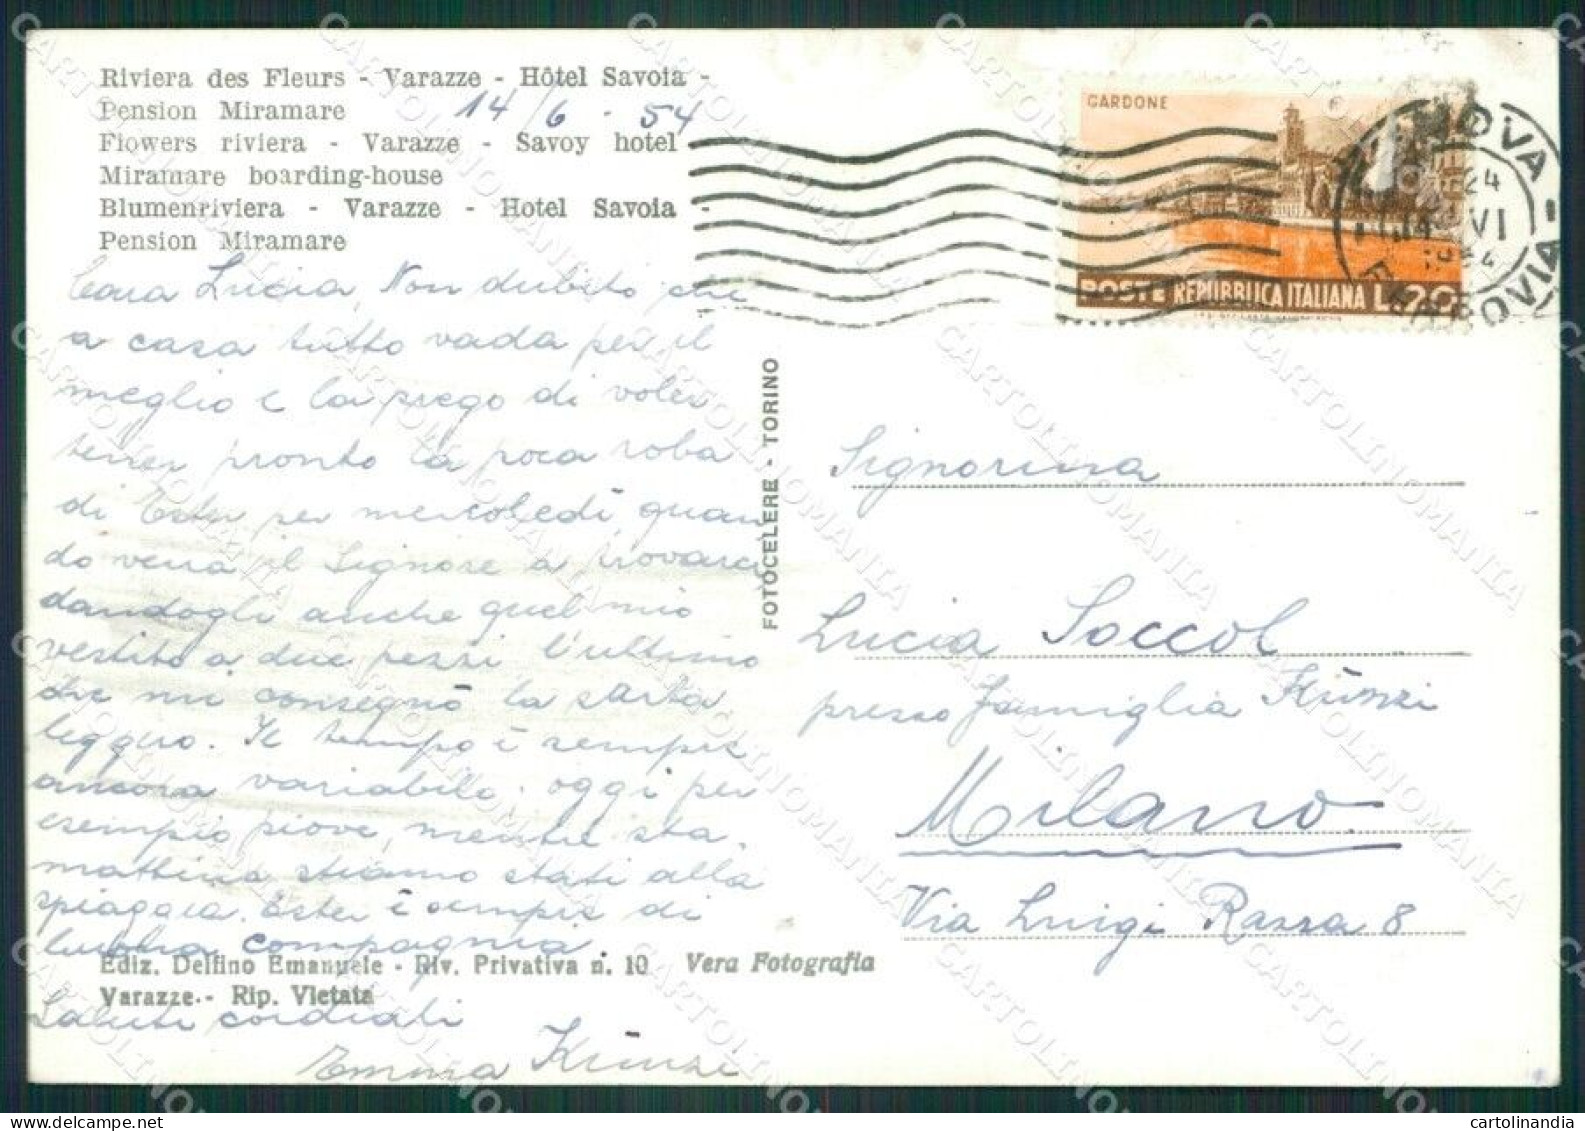 Riviera des Fleurs - Varazze - Hôtel Savoia -
Pension Miramare
14/6 - 54
Flowers riviera - Varazze - Savoy hotel
Miramare boarding-house
Blumenriviera - Varazze - Hotel Savoia -
Pension Miramare
Cara Lucia, Non dubito che
a casa tutto vada per il
meglio e la prego di voler
tener pronto la poca roba
di Ester per mercoledì, quan
do verrà il Signore a trovarci
dandogli anche quel mio
vestito a due pezzi l'ultimo
che mi consegnò la sarta
leggero. Il tempo è sempre
ancora variabile. oggi per
esempio piove, mentre sta
mattina stiamo stati alla
spiaggia. Ester è sempre di
buona compagnia.
Ediz. Delfino Emanuele - Riv. Privativa n. 10 Vera Fotografia
Varazze - Rip. Vietata
Saluti cordiali
Emma Künzi
FOTOCELERE - TORINO
GARDONE
POSTE REPUBBLICA ITALIANA L. 20
24
VI
FERROVIA
Signorina
Lucia Soccol
presso famiglia Künzi
Milano
Via Luigi Razza 8
CARTOLINOMANIA
cartolinandia